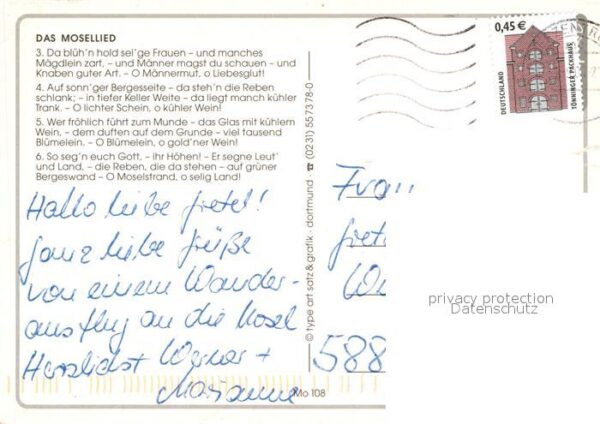 DAS MOSELLIED
3. Da blüh'n hold sel'ge Frauen – und manches
Mägdlein zart, – und Männer magst du schauen – und
Knaben guter Art. – O Männermut, o Liebesglut!
4. Auf sonn'ger Bergesseite – da steh'n die Reben
schlank; – in tiefer Keller Weite – da liegt manch kühler
Trank. – O lichter Schein, o kühler Wein!
5. Wer fröhlich führt zum Munde – das Glas mit kühlem
Wein, – dem duften auf dem Grunde – viel tausend
Blümelein. – O Blümelein, o gold'ner Wein!
6. So seg'n euch Gott, – ihr Höhen! – Er segne Leut'
und Land, – die Reben, die da stehen – auf grüner
Bergeswand – O Moselstrand, o selig Land!
Hallo liebe Gretel!
Ganz liebe Grüße
von einem Wander-
ausflug an die Mosel
Herzlichst Werner +
Marianne
© type art satz & grafik · dortmund · ☎ (02 31) 55 73 78-0
Mo 108
0,45 €
DEUTSCHLAND
TÖNNINGER PACKHAUS
Frau
588
privacy protection
Datenschutz